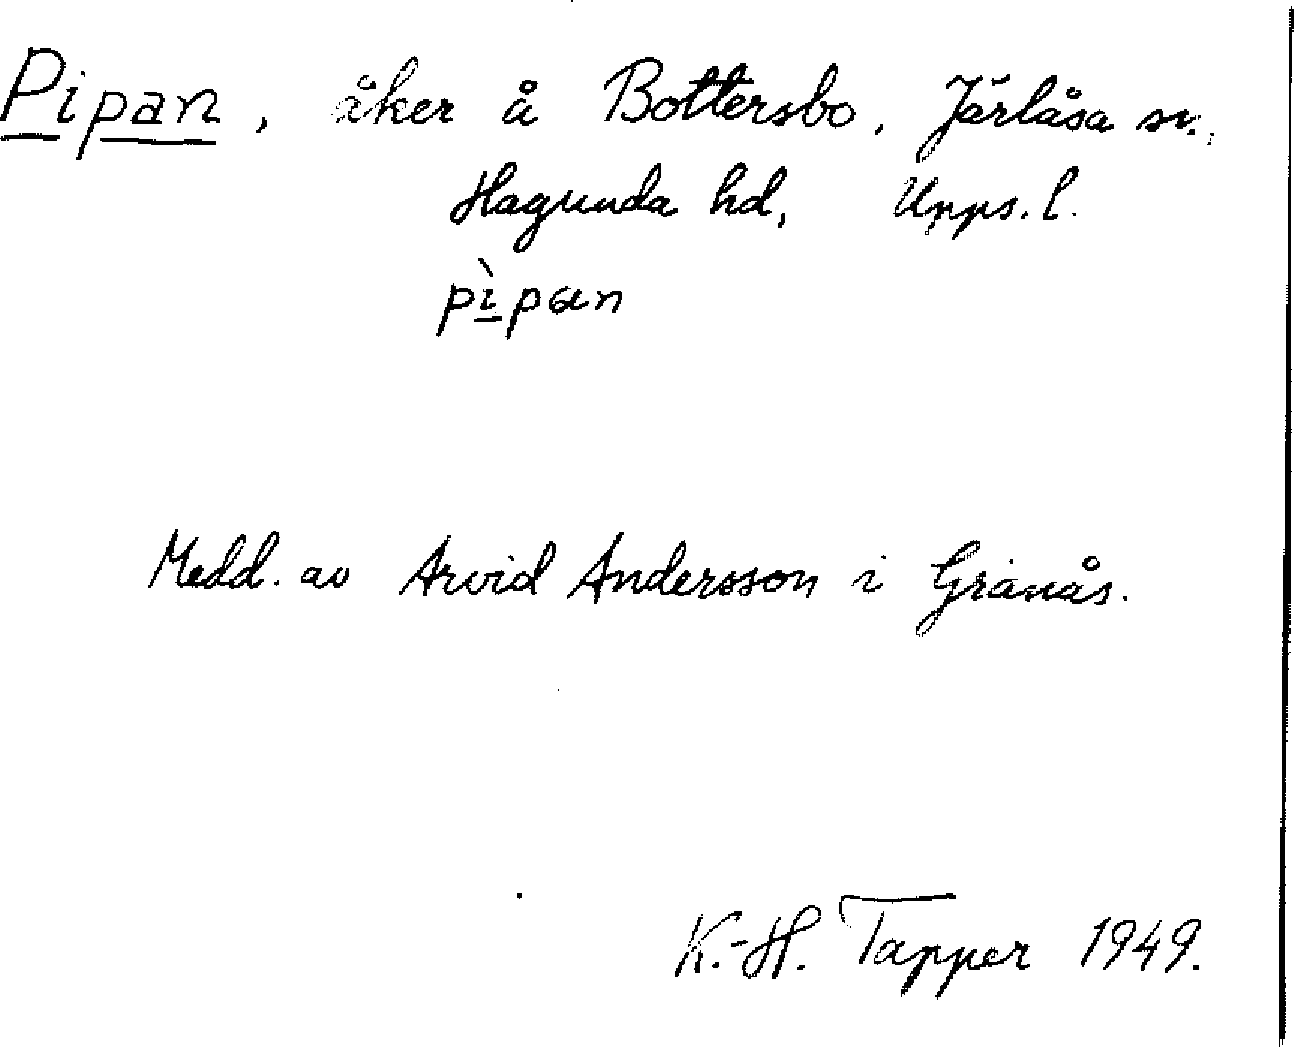 Pipan, åker å Bottersbo, Järlåsa sn.,
Hagunda hd, Upps. l.
pìpan
Medd. av Arvid Andersson i Granås.
K.-H. Tapper 1949.